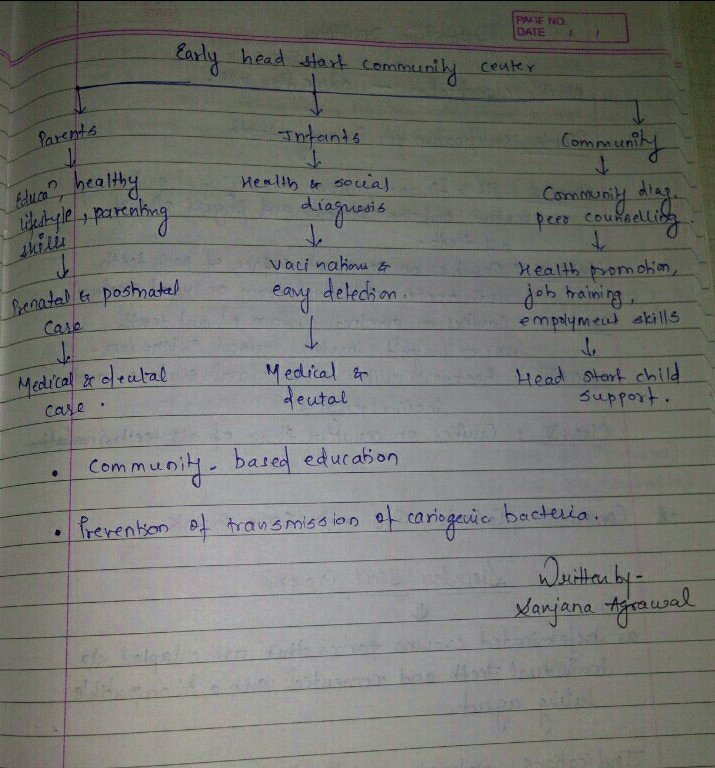 PAGE NO.
DATE / /
Early head start community center
Parents
Infants
Community
Educaⁿ, healthy
lifestyle, parenting
skills
Health & social
diagnosis
Community diag.
peer counselling.
Prenatal & postnatal
case
vaccinations &
eavy detection.
Health promotion,
job training,
empolyment skills
Medical & dental
case.
Medical &
dental
Head start child
support.
• Community-based education
• Prevention of transmission of cariogenic bacteria.
Written by-
Sanjana Agrawal